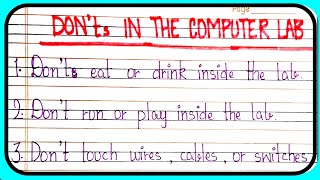 Page
DON'Ts IN THE COMPUTER LAB
1. Don'ts eat or drink inside the lab.
2. Don't run or play inside the lab.
3. Don't touch wires, cables, or switches